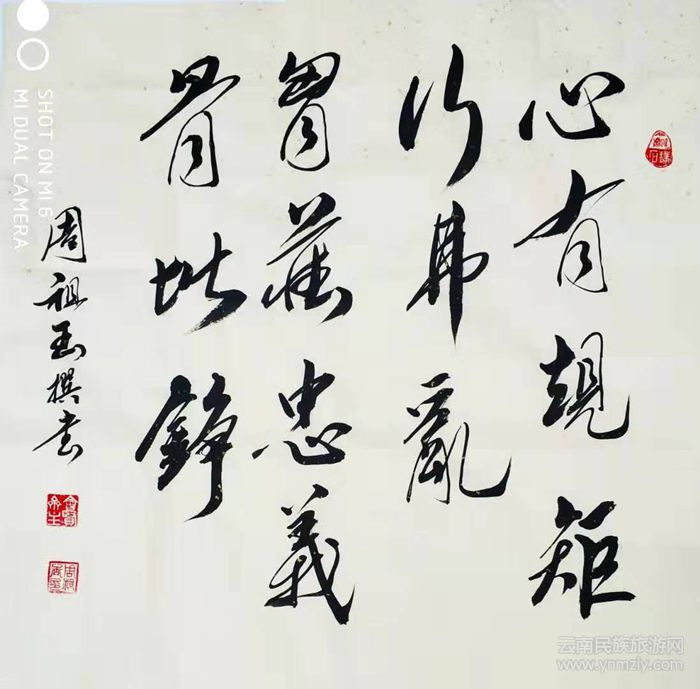 心有規矩
行弗亂
藏忠義
骨錚
周祖玉撰书
SHOT ON MI 6
MI DUAL CAMERA
云南民族旅游网
www.ynmzly.com